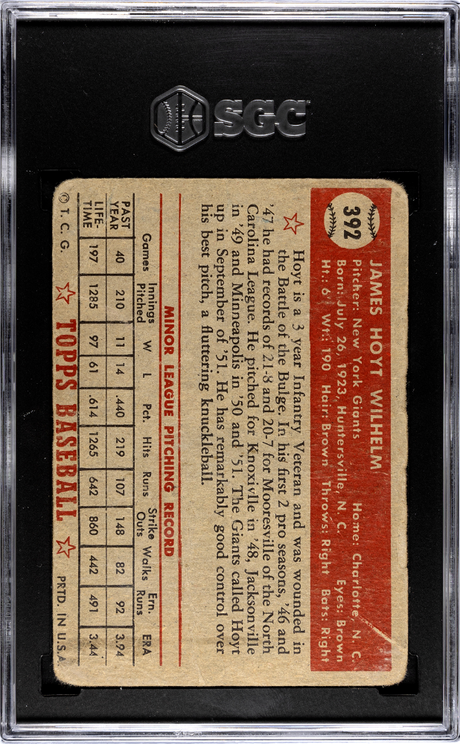 SGC
392
JAMES HOYT WILHELM
Pitcher: New York Giants Home: Charlotte, N. C.
Born: July 26, 1923, Huntersville, N. C. Eyes: Brown
Ht.: 6' Wt.: 190 Hair: Brown Throws: Right Bats: Right
Hoyt is a 3 year Infantry Veteran and was wounded in
the Battle of the Bulge. In his first 2 pro seasons, '46 and
'47 he had records of 21-8 and 20-7 for Mooresville of the North
Carolina League. He pitched for Knoxville in '48, Jacksonville
in '49 and Minneapolis in '50 and '51. The Giants called Hoyt
up in September of '51. He has remarkably good control over
his best pitch, a fluttering knuckleball.
MINOR LEAGUE PITCHING RECORD
Games Innings Pitched W L Pct. Hits Runs Strike Outs Walks Ern. Runs ERA
PAST YEAR 40 210 11 14 .440 219 107 148 82 92 3.94
LIFE-TIME 197 1285 97 61 .614 1265 642 860 442 491 3.44
© T. C. G. TOPPS BASEBALL PRTD. IN U.S.A.